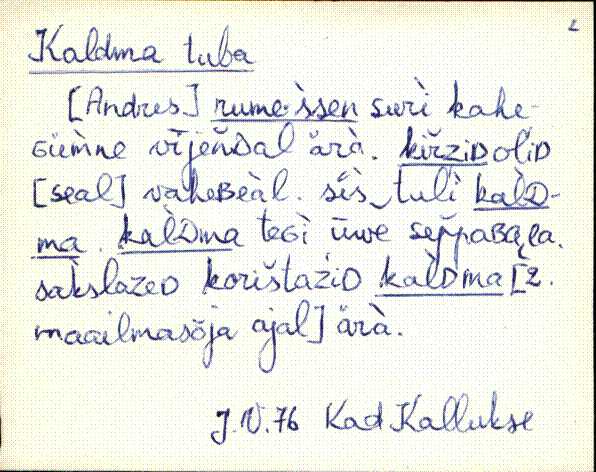 2
Kaldma tuba
[Andres] rume·ìssen suri kahe-
ɢüm̀ne vīješ́ᴅal ärà. kìřziᴅ oliᴅ
[seal] vaheʙeàl. sīs‿tuli kalᴅ̀-
ma. kalᴅ̀ma teɢì ūwe sep̆paʙaɪ̯a.
sakslazeᴅ korištaziᴅ kalᴅ̀ma [2.
maailmasõja ajal] ärà.
J.V.76 Kad Kallukse